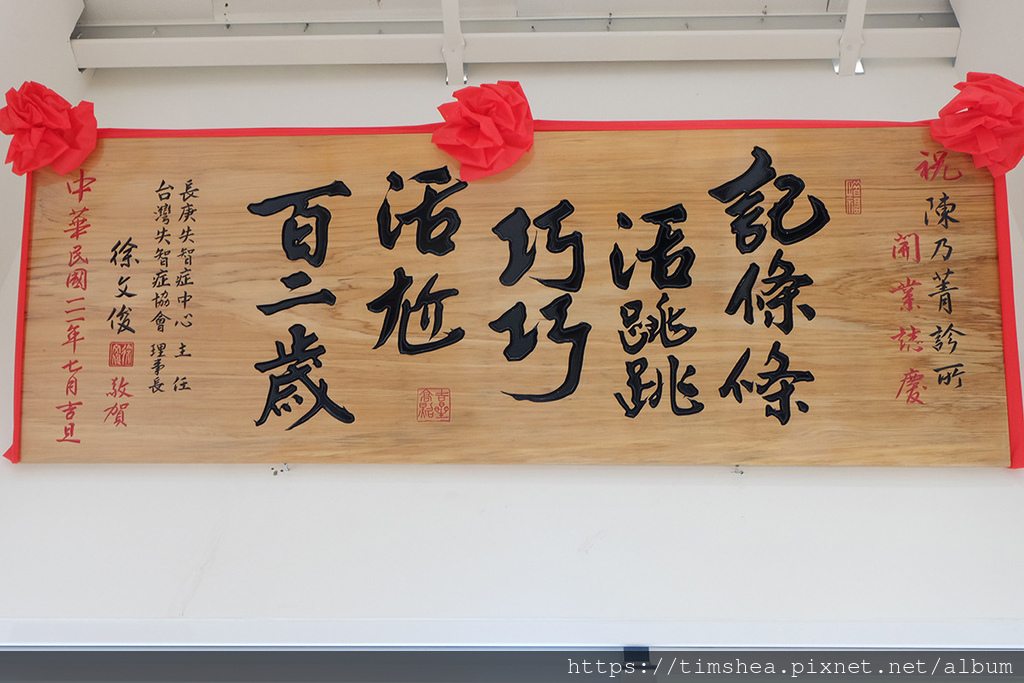 祝
陳乃菁診所
開業誌慶
記條條
活跳跳
巧巧
活尬
百二歲
長庚失智症中心 主任
台灣失智症協會 理事長
徐文俊
敬賀
中華民國一一一年七月吉旦
https://timshea.pixnet.net/album